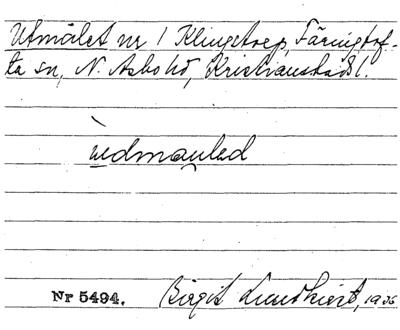 Utmålet nr 1 Klingstorp, Färingtof-
ta sn, N. Åsbo hd, Kristianstads l.
ùdmaułed
Nr 5494. Birgit Lundkvist, 1935